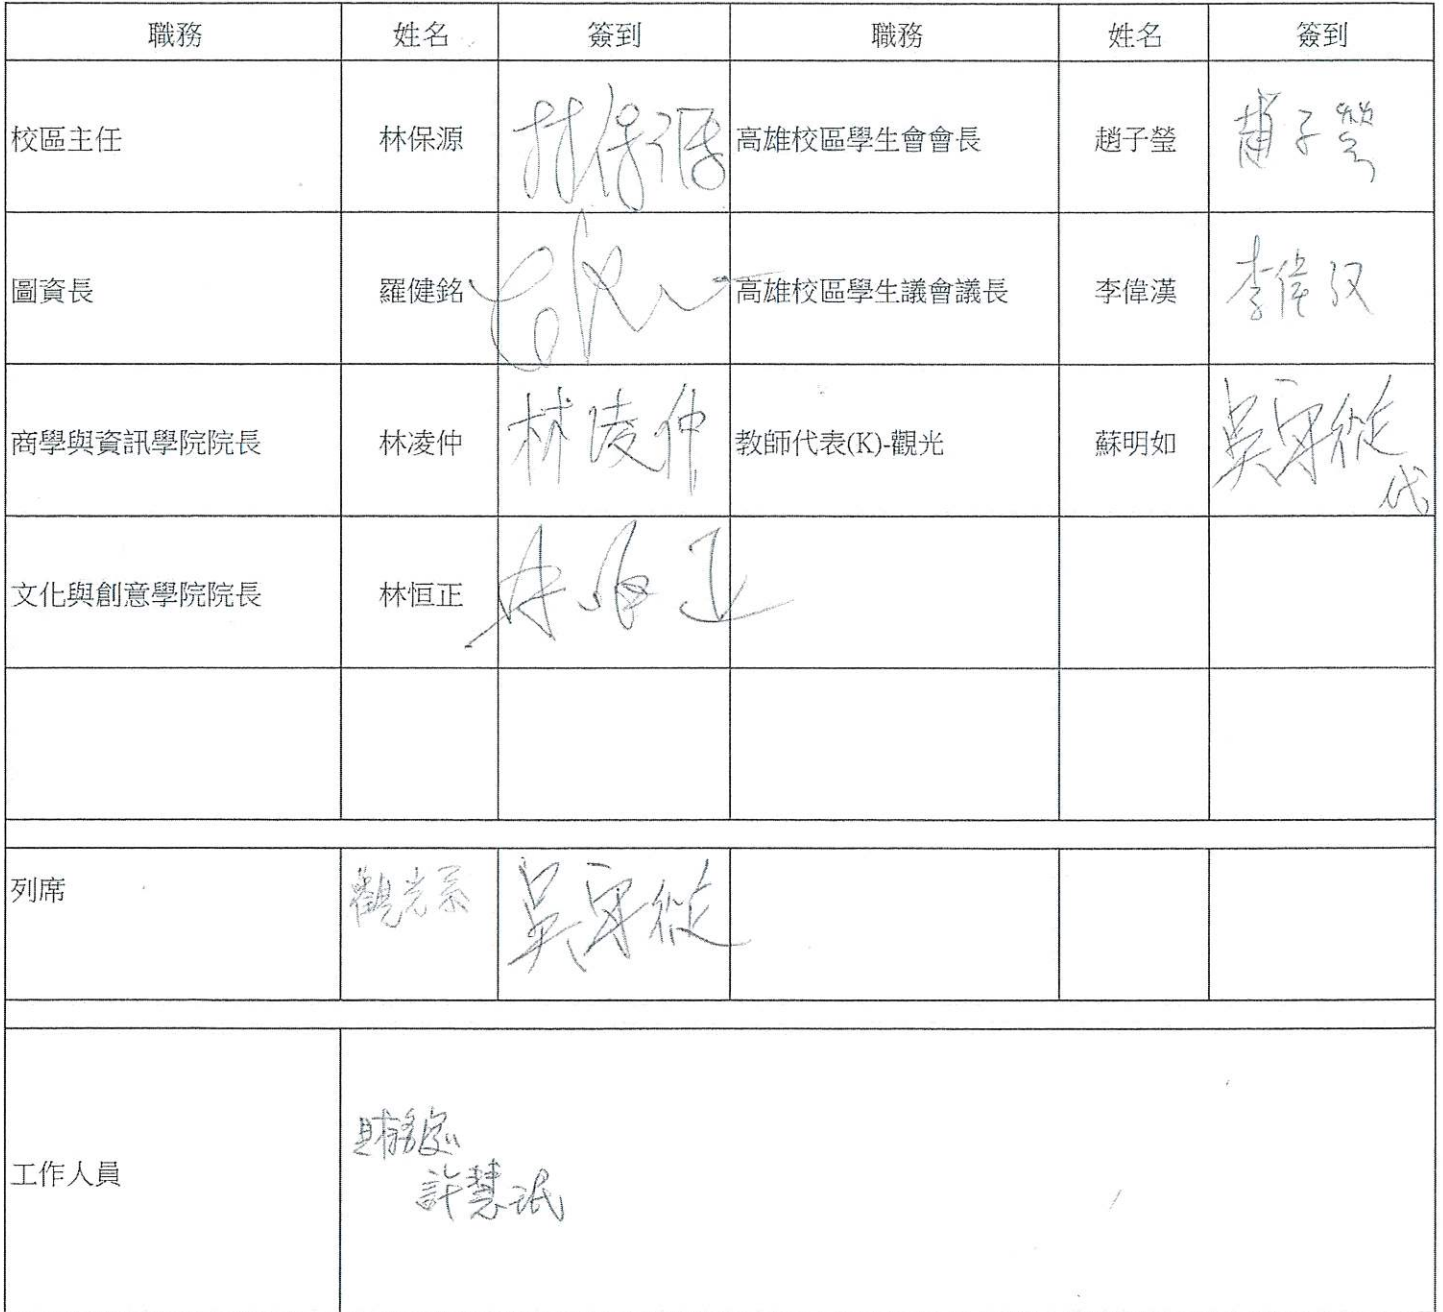 職務 姓名 簽到 職務 姓名 簽到
校區主任 林保源 林保源 高雄校區學生會會長 趙子瑩 趙子瑩
圖資長 羅健銘 高雄校區學生議會議長 李偉漢 李偉汉
商學與資訊學院院長 林凌仲 林凌仲 教師代表(K)-觀光 蘇明如 吳守從
代
文化與創意學院院長 林恒正 林恒正
列席 觀光系 吳守從
財務處
工作人員
許慧珉